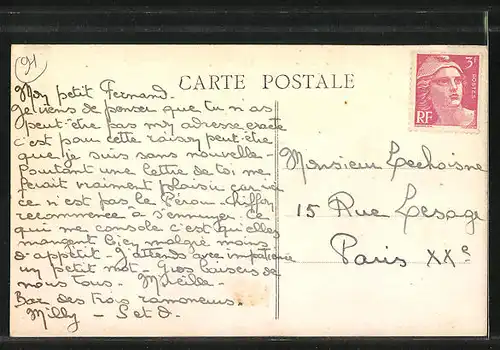 91
CARTE POSTALE
3F
POSTES
RF
Mon petit Fernand.
Je viens de penser que tu n'as
peut-être pas mon adresse exacte
c'est pour cette raison peut-être
que je suis sans nouvelle -
Pourtant une lettre de toi me
ferait vraiment plaisir car ici
ce n'est pas le Pérou. Chiffon
recommence à s'ennuyer. Ce
qui me console c'est qu'elles
mangent bien malgré moins
d'appétit - J'attends avec impatience
un petit mot - Gros baisers de
nous tous. Mireille.
Bar des trois ramoneurs.
Milly - S et O.
Monsieur Lechoisne
15 Rue Lesage
Paris XXe